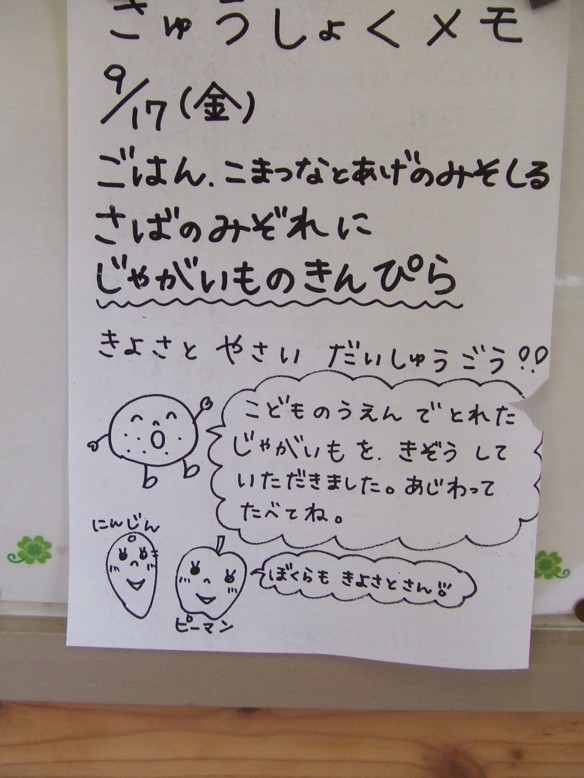 きゅうしょくメモ
9/17(金)
ごはん.こまつなとあげのみそしる
さばのみぞれに
じゃがいものきんぴら
きよさと やさい だいしゅうごう!!
こどものうえん でとれた
じゃがいもを. きぞう して
いただきました。あじわって
たべてね。
にんじん
ぼくらも きよさとさん!!
ピーマン